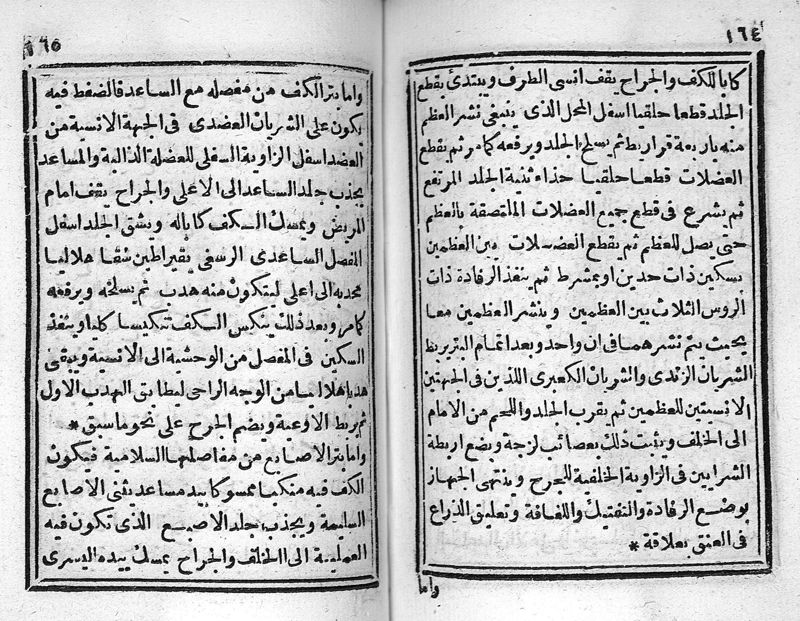 ١٦٤
كابا للكف والجراح يقف انسى الطرف ويبتدئ بقطع
الجلد قطعا حلقيا اسفل المحل الذى ينبغى نشر العظم
منه باربعة قراريط ثم يسلخ الجلد ويرفعه كما مر ثم يقطع
العضلات قطعا حلقيا حذاء ثنية الجلد المرتفع
ثم يشرع فى قطع جميع العضلات الملتصقة بالعظم
حتى يصل للعظم ثم يقطع العضلات بين العظمين
بسكين ذات حدين او بمشرط ثم ينفذ الرفادة ذات
الروس الثلاث بين العظمين وينشر العظمين معا
بحيث يتم نشرهما فى ان واحد وبعد اتمام البتر يربط
الشريان الزندى والشريان الكعبرى اللذين فى الجهتين
الانسيتين للعظمين ثم يقرب الجلد واللحم من الامام
الى الخلف ويثبت ذلك بعصائب لزجة وبضع اربطة
الشرايين فى الزاوية الخلفية للجرح وينتهى الجهاز
بوضع الرفادة والتفتيك واللفافة وتعليق الذراع
فى العنق بعلاقة *
واما
١٦٥
واما بتر الكف من مفصله مع الساعد فالضغط فيه
يكون على الشريان العضدى فى الجهة الانسية من
العضد اسفل الزاوية السفلى للعضلة الدالية والمساعد
يجذب جلد الساعد الى الاعلى والجراح يقف امام
المريض ويمسك الكف كاباله ويشق الجلد اسفل
المفصل الساعدى الرسغى بقيراطين شقا هلاليا
محدبه الى اعلى ليتكون منه هدب ثم يسلخه ويرفعه
كما مر وبعد ذلك ينكس الكف تنكيسا كليا وينفذ
السكين فى المفصل من الوحشية الى الانسية ويبقى
هدبا هلاليا من الوجه الراحى ليطابق الهدب الاول
ثم يربط الاوعية ويضم الجرح على نحو ما سبق *
واما بتر الاصابع من مفاصلها السلامية فيكون
الكف فيه منكبا ممسوكا بيد مساعد يثنى الاصابع
السليمة ويجذب جلد الاصبع الذى تكون فيه
العملية الى الخلف والجراح يمسك بيده اليسرى